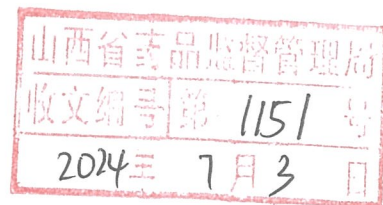 山西省药品监督管理局
收文编号 第 1151 号
2024年 7月3日